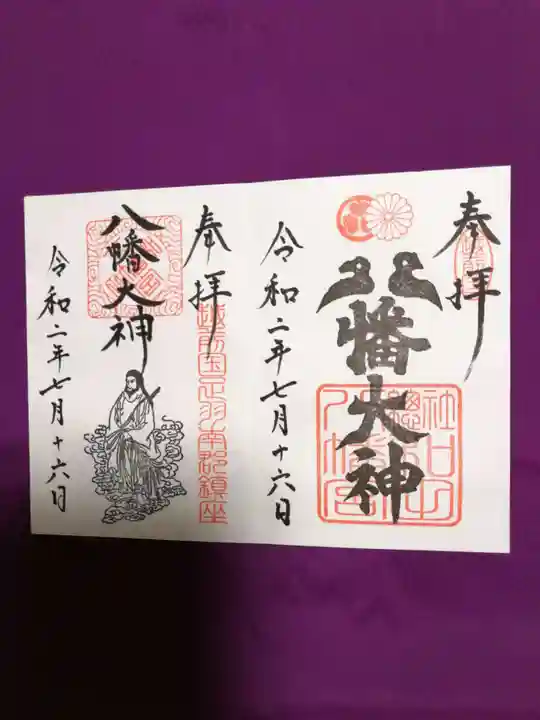 奉拝
八幡大神
令和二年七月十六日
奉拝
越前国足羽南郡鎮座
八幡大神
令和二年七月十六日